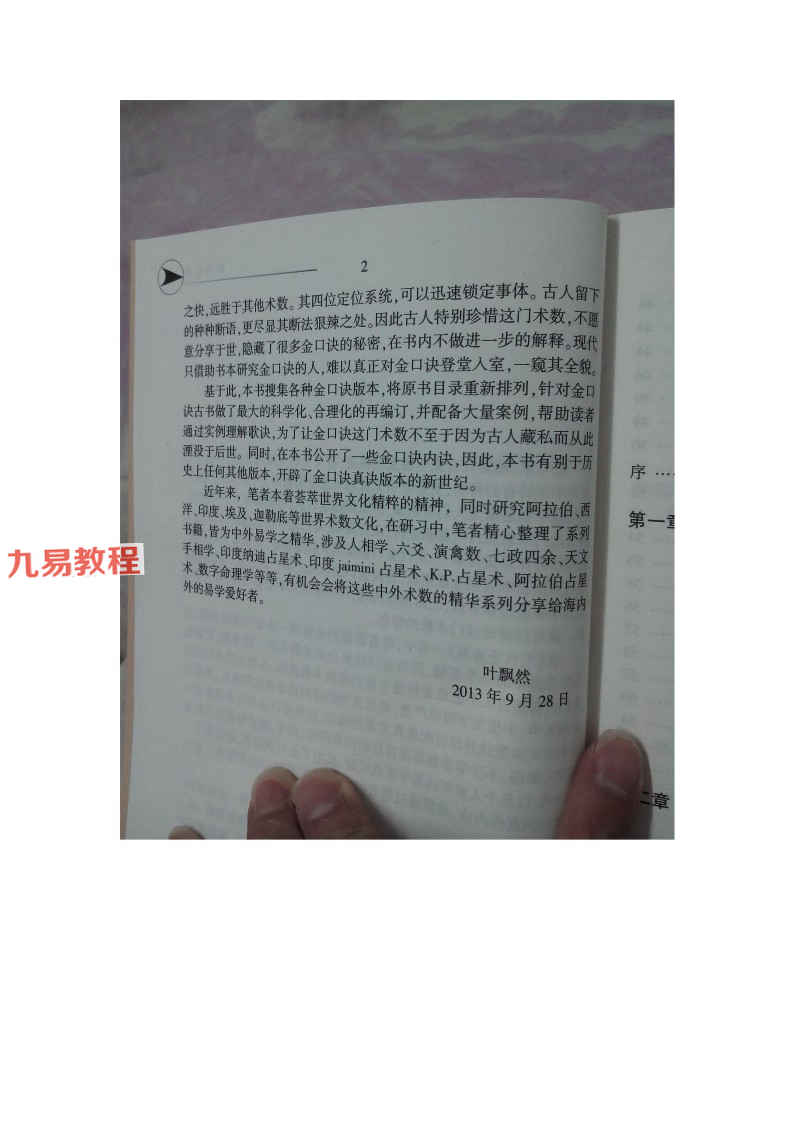 2
之快,远胜于其他术数。其四位定位系统,可以迅速锁定事体。古人留下
的种种断语,更尽显其断法狠辣之处。因此古人特别珍惜这门术数,不愿
意分享于世,隐藏了很多金口诀的秘密,在书内不做进一步的解释。现代
只借助书本研究金口诀的人,难以真正对金口诀登堂入室,一窥其全貌。
基于此,本书搜集各种金口诀版本,将原书目录重新排列,针对金口
诀古书做了最大的科学化、合理化的再编订,并配备大量案例,帮助读者
通过实例理解歌诀,为了让金口诀这门术数不至于因为古人藏私而从此
湮没于后世。同时,在本书公开了一些金口诀内诀,因此,本书有别于历
史上任何其他版本,开辟了金口诀真诀版本的新世纪。
近年来，笔者本着荟萃世界文化精粹的精神，同时研究阿拉伯、西
洋、印度、埃及、迦勒底等世界术数文化,在研习中,笔者精心整理了系列
书籍,皆为中外易学之精华,涉及人相学、六爻、演禽数、七政四余、天文
手相学、印度纳迪占星术、印度 jaimini 占星术、K.P.占星术、阿拉伯占星
术、数字命理学等等,有机会会将这些中外术数的精华系列分享给海内
外的易学爱好者。
叶飘然
2013 年 9 月 28 日
序 ……
第一章
二章
九易教程